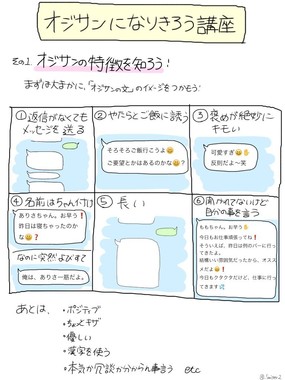 オジサンになりきろう講座
その1. オジサンの特徴を知ろう!
まずは大まかに、「オジサンの文」のイメージをつかもう!
①返信がなくても
メッセージを送る
②やたらとご飯に誘う
そろそろご飯行こうよ😄
ご要望とかはあるのかな😄?
③褒めが絶妙に
キモい
可愛すぎ😄✋
反則だよ〜笑
④名前はちゃん付け
ありさちゃん、お早う!
昨日は寝ちゃったのか
な😄?
なのに突然よびすて
俺は、ありさ一筋だよ。
⑤長い
⑥聞かれてないけど
自分の事を言う
ももちゃん、お早う✋
今日もお仕事頑張ってね!
そういえば、昨日は例のバーに行っ
てきたよ。
結構いい雰囲気だったから、オスス
メだよ😄!
今日もクタクタだけど、仕事に行っ
てきます💦
あとは、・ポジティブ
・ちょっとキザ
・優しい
・漢字を使う
・本気か冗談か分からん事言う etc